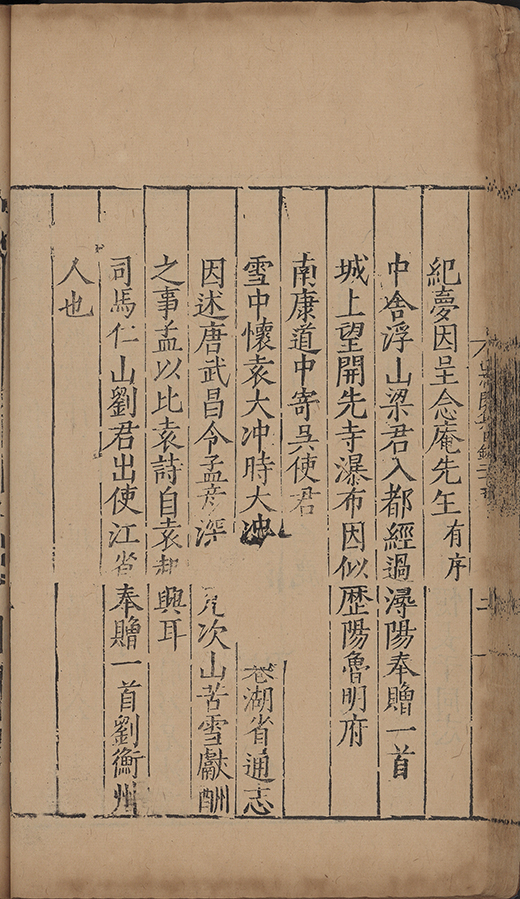 紀夢因呈念庵先生有序
中舍浮山梁君入都經過潯陽奉贈一首
城上望開先寺瀑布因似歷陽魯明府
南康道中寄吳使君
雪中懷袁大冲時大冲 湖省通志
因述唐武昌令孟彥深 元次山苦雪獻酬
之事孟以比袁詩自袁起興耳
司馬仁山劉君出使江省奉贈一首劉衡州
人也
二